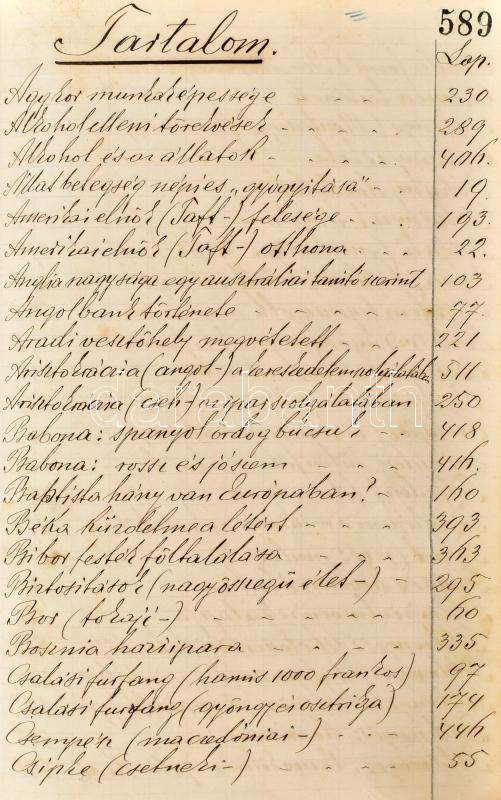 589
Tartalom.
Lap.
Aggkor munkaképessége - - - 230
Alkohol elleni törekvések - - - 289
Alkohol és az állatok - - - 406.
Állatbetegség népies „gyógyitása" - . 19.
Amerikai elnök (Taft-) felesége - - . 193.
Amerikai elnök (Taft-) otthona - - 22.
Anglia nagysága egy ausztráliai tanitó szerint 103
Angol bank története - - - 77.
Aradi vesztőhely megvételett - - 221
Arisztokrácia (angol-) a kereskedelem szolgálatában 511
Arisztokrácia (cseh-) az ipar szolgálatában 250
Babona: spanyol ördög búcsu. - . 418
Babona: rossz és jó szem - - - 416.
Baptista hány van Európában? - - 160
Béka küzdelme a létért - - - 393
Bibor festék föltalálása - - - 363
Biztositások (nagyösszegü élet-) - 295
Bor (tokaji-) - - - - - 60
Bosznia háziipara - - - - 335
Csalási furfang (hamis 1000 frankos) 97
Csalási furfang (gyöngy és osztriga) 174
Csempék (macedóniai-) - . - 446
Csipke (csetneki-) - - - - 55
darabanth